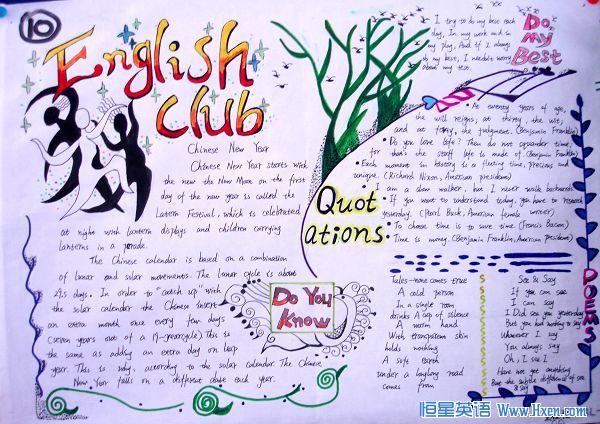 10
English
club
Chinese New Year
Chinese New Year starts with
the new the New Moon on the first
day of the new year is called the
Lantern Festival, which is celebrated
at night with lantern displays and children carrying
lanterns in a parade.
The Chinese calendar is based on a combination
of lunar and solar movements. The lunar cycle is about
29.5 days. In order to "catch up" with
the solar calendar the Chinese insert
an extra month once every few days
(seven years out of a 19-yearcycle). This is
the same as adding an extra day on leap
year. This is why, according to the solar calendar, The Chinese
New Year falls on a different date each year.
Do You
Know
Do
My
Best
I try to do my best each
day, In my work and in
my play, And if I always
do my best, I needn't worry
about my test.
Quot
ations:
At twenty years of age,
the will reigns; at thirty, the wit;
and at forty, the judgment. (Benjamin Franklin)
Do you love life? Then do not squander time;
for that's the stuff life is made of. (Benjamin Franklin)
Each moment in history is a fleeting time, precious and
unique. (Richard Nixon, American president)
I am a slow walker, but I never walk backwards.
If you want to understand today, you have to research
yesterday. (Pearl Buck, American female writer)
To choose time is to save time. (Francis Bacon)
Time is money. (Benjamin Franklin, American president)
POEMS
Tales-none comes true
A cold person
In a single room
drinks A cup of silence
A warm hand
With transparent skin
holds nothing
A safe earth
under a laughing road
comes from
See & Say
If you can see
I can say
I Did see you yesterday
But you had nothing to say
Whatever I say
You always say
Oh, I see I
Have not got anything
But the subtle difference of see
& say
恒星英语 Www.Hxen.com